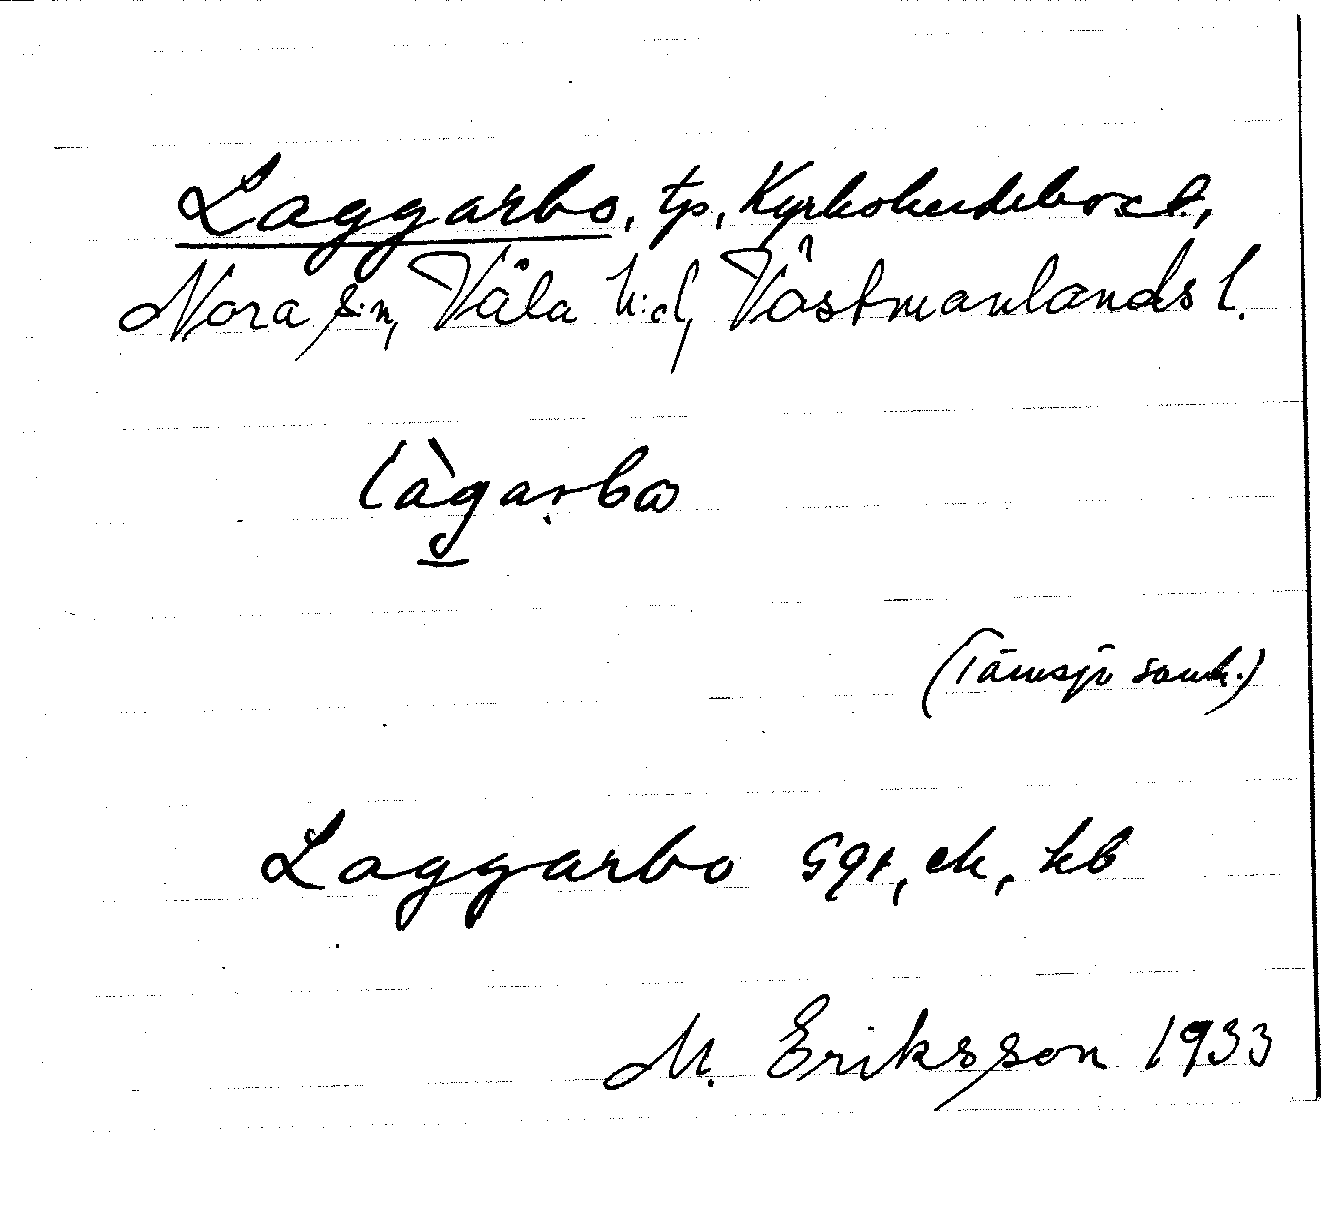 Laggarbo, tp, Kyrkoherdebost.,
Nora s:n, Våla h:d, Västmanlands l.
làgarbω
(Tärnsjö samh.)
Laggarbo Ggt, ek, kb
M. Eriksson 1933